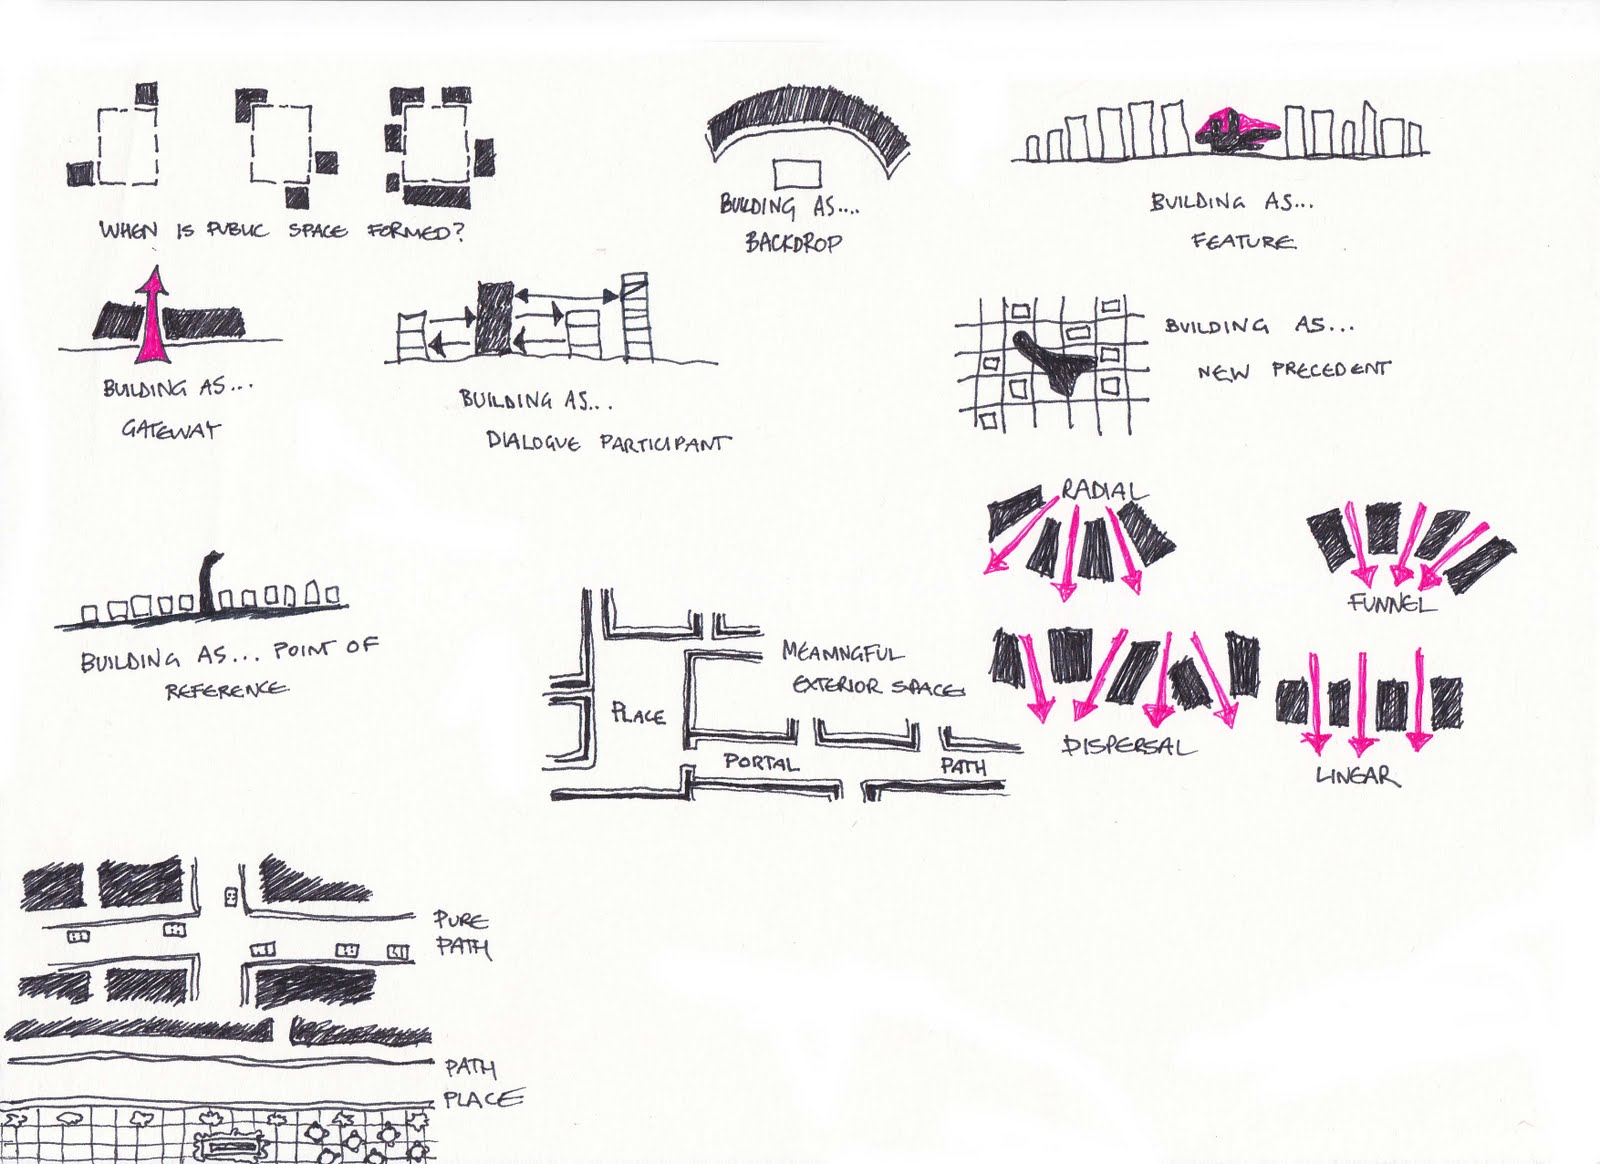 WHEN IS PUBLIC SPACE FORMED?
BUILDING AS....
BACKDROP
BUILDING AS...
FEATURE
BUILDING AS...
GATEWAY
BUILDING AS...
DIALOGUE PARTICIPANT
BUILDING AS...
NEW PRECEDENT
BUILDING AS... POINT OF
REFERENCE
MEANINGFUL
EXTERIOR SPACES
PLACE
PORTAL
PATH
RADIAL
FUNNEL
DISPERSAL
LINEAR
PURE
PATH
PATH
PLACE